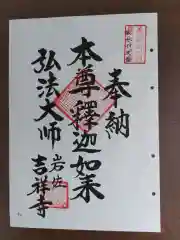 奉納
本尊釋迦如来
弘法大師
岩佐
吉祥寺